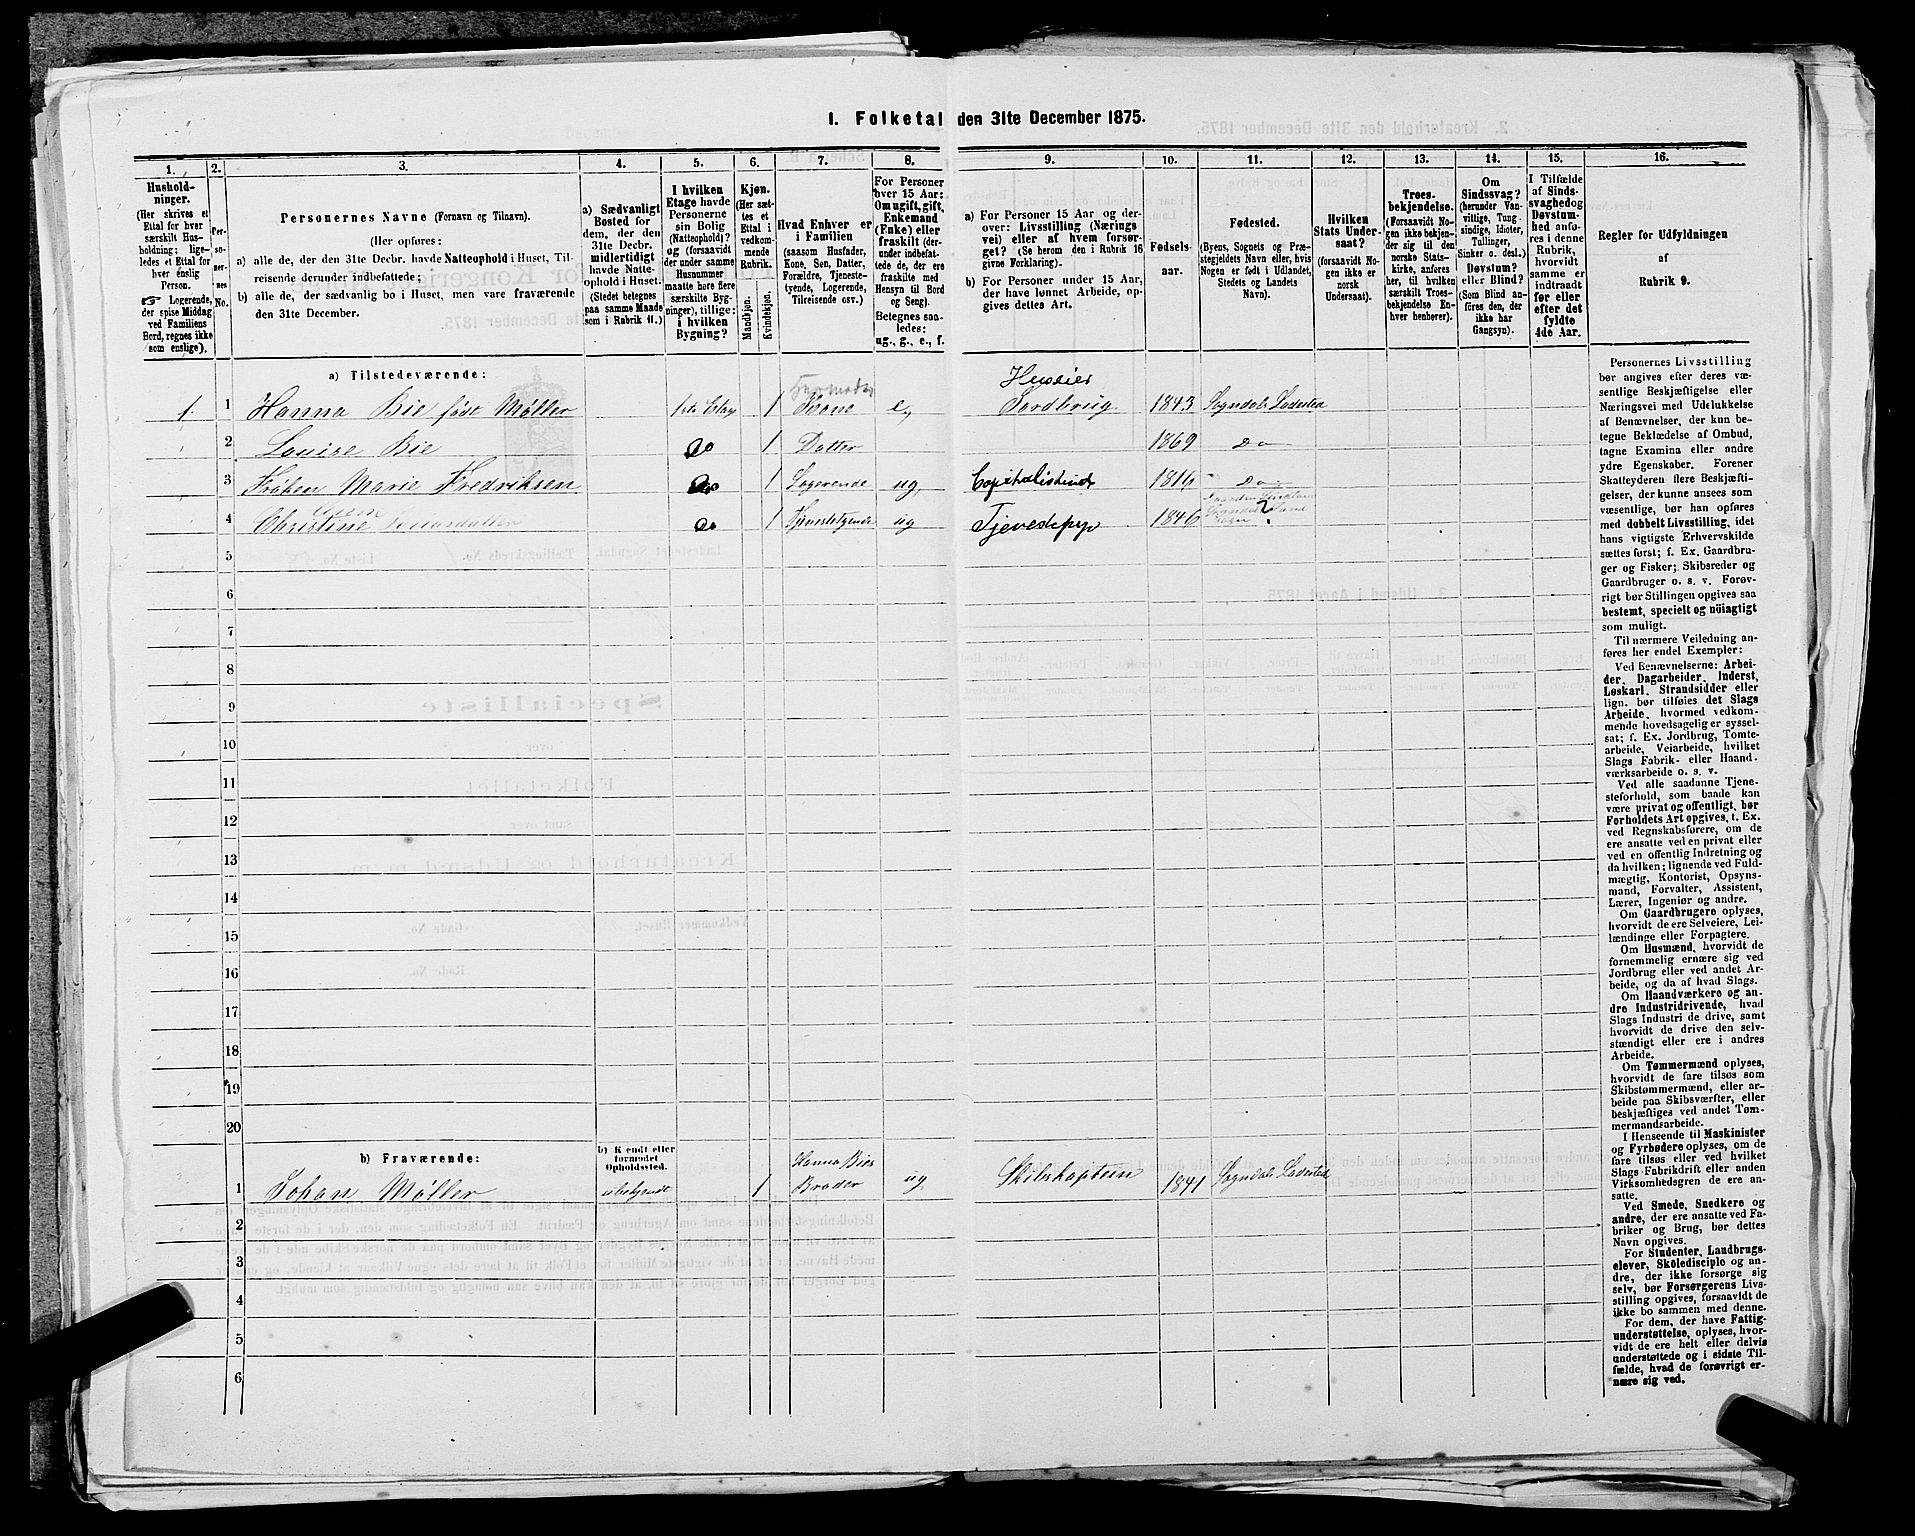 1. Folketal den 31te December 1875.
1. 2. 3. 4. 5. 6. 7. 8. 9. 10. 11. 12. 13. 14. 15. 16.
Hushold-
ninger.
(Her skrives et
Ettal for hver
særskilt Hus-
holdning; lige-
ledes et Ettal for
hver enslig
Person.
☞ Logerende,
der spise Middag
ved Familiens
Bord, regnes ikke
som enslige).
Per-
so-
ner-
nes
No.
Personernes Navne (Fornavn og Tilnavn).
(Her opføres:
a) alle de, der den 31te Decbr. havde Natteophold i Huset, Til-
reisende derunder indbefattede;
b) alle de, der sædvanlig bo i Huset, men vare fraværende
den 31te December.
a) Sædvanligt
Bosted for
dem, der den
31te Decbr.
midlertidigt
havde Natte-
ophold i Huset.
(Stedet betegnes
paa samme Maade
som i Rubrik 11.)
I hvilken
Etage havde
Personerne
sin Bolig
(Natteophold)?
og (forsaavidt
der under samme
Husnummer
maatte høre flere
særskilte Byg-
ninger), tillige:
i hvilken
Bygning?
Kjøn.
(Her sæt-
tes et
Ettal i
vedkom-
mende
Rubrik.
Mandkjøn.
Kvindekjøn.
Hvad Enhver er
i Familien
(saasom Husfader,
Kone, Søn, Datter,
Forældre, Tjeneste-
tyende, Logerende,
Tilreisende osv.)
For Personer
over 15 Aar:
Om ugift, gift,
Enkemand
(Enke) eller
fraskilt (der-
under indbefat-
tede de, der ere
fraskilte med
Hensyn til Bord
og Seng).
Betegnes saa-
ledes:
ug., g., e., f.
a) For Personer 15 Aar og der-
over: Livsstilling (Nærings
vei) eller af hvem forsør-
get? (Se herom den i Rubrik 16
givne Forklaring).
b) For Personer under 15 Aar,
der have lønnet Arbeide, op-
gives dettes Art.
Fødsels-
aar.
Fødested.
(Byens, Sognets og Præ-
stegjeldets Navn eller, hvis
Nogen er født i Udlandet,
Stedets og Landets
Navn).
Hvilken
Stats Under-
saat?
(forsaavidt No-
gen ikke er
norsk
Undersaat).
Troes-
bekjendelse.
(Forsaavidt No-
gen ikke bekjen-
der sig til den
norske Stats-
kirke, anføres
her, til hvilken
særskilt Troes-
bekjendelse En-
hver henhører).
Om
Sindssvag?
(herunder Van-
vittige, Tung-
sindige, Idioter,
Tullinger,
Sinker o. desl.)
Døvstum?
eller Blind?
(Som Blind an-
føres den, der
ikke har
Gangsyn).
I Tilfælde
af Sinds-
svaghed og
Døvstum-
hed anfø-
res i denne
Rubrik,
hvorvidt
samme er
indtraadt
før eller
efter det
fyldte
4de Aar.
Regler for Udfyldningen
af
Rubrik 9.
a) Tilstedeværende:
Huseier
1. 1 Hanna Bie født Møller 1ste Etage 1 Kone e, Jordbrug 1843 Sogndals Ladested
2 Louise Bie Do 1 Datter 1869 Do
3 Frøken Marie Fredriksen Do 1 Logerende ug, Capitalistinde 1816 Do
4 Christine Do 1 Tjenestetyende ug Tjenestepige 1846 ?
5
6
7
8
9
10
11
12
13
14
15
16
17
18
19
20
b) Fraværende:
b) Kjendt eller
formodet
Opholdssted.
Hanna Bies
1 Johan Møller ubekjendt 1 Broder ug Skibskaptein 1841 Sogndals Ladested
2
3
4
5
6
Personernes Livsstilling
bør angives efter deres væ-
sentlige Beskjæftigelse eller
Næringsvei med Udelukkelse
af Benævnelser, der kun be-
tegne Beklædelse af Ombud,
tagne Examina eller andre
ydre Egenskaber. Forener
Skatteyderen flere Beskjæfti-
gelser, der kunne ansees som
væsentlige, bør han opføres
med dobbelt Livsstilling, idet
hans vigtigste Erhvervskilde
sættes først; f. Ex. Gaardbru-
ger og Fisker; Skibsreder og
Gaardbruger o. s. v. Forøv-
rigt bør Stillingen opgives saa
bestemt, specielt og nöiagtigt
som muligt.
Til nærmere Veiledning an-
føres her endel Exempler:
Ved Benævnelserne: Arbei-
der, Dagarbeider, Inderst,
Løskarl, Strandsidder eller
lign. bør tilføies det Slags
Arbeide, hvormed vedkom-
mende hovedsagelig er syssel-
sat; f. Ex. Jordbrug, Tomte-
arbeide, Veiarbeide, hvilket
Slags Fabrik- eller Haand-
værksarbeide o. s. v.
Ved alle saadanne Tjene-
steforhold, som baade kan
være privat og offentligt, bør
Forholdets Art opgives, t. Ex.
ved Regnskabsførere, om de
ere ansatte ved en privat eller
ved en offentlig Indretning og
da hvilken; lignende ved Fuld-
mægtig, Kontorist, Opsyns-
mand, Forvalter, Assistent,
Lærer, Ingeniør og andre.
Om Gaardbrugere oplyses,
hvorvidt de ere Selveiere, Lei-
lændinge eller Forpagtere.
Om Husmænd, hvorvidt de
fornemmelig ernære sig ved
Jordbrug eller ved andet Ar-
beide, og da af hvad Slags.
Om Haandværkere og an-
dre Industridrivende, hvad
Slags Industri de drive, samt
hvorvidt de drive den selv-
stændigt eller ere i andres
Arbeide.
Om Tømmermænd oplyses,
hvorvidt de fare tilsøs som
Skibstømmermænd, eller ar-
beide paa Skibsværfter, eller
beskjæftiges ved andet Tøm-
mermandsarbeide.
I Henseende til Maskinister
og Fyrbødere oplyses, om de
fare tilsøs eller ved hvilket
Slags Fabrikdrift eller anden
Virksomhedsgren de ere an-
satte.
Ved Smede, Snedkere og
andre, der ere ansatte ved Fa-
briker og Brug, bør dettes
Navn opgives.
For Studenter, Landbrugs-
elever, Skoledisciple og an-
dre, der ikke forsørge sig
selv, bør Forsørgerens Livs-
stilling opgives, forsaavidt de
ikke bo sammen med denne.
For dem, der have Fattig-
understøttelse, oplyses, hvor-
vidt de ere helt eller delvis
understøttede og i sidste Til-
fælde, hvad de forøvrigt er-
nære sig ved.